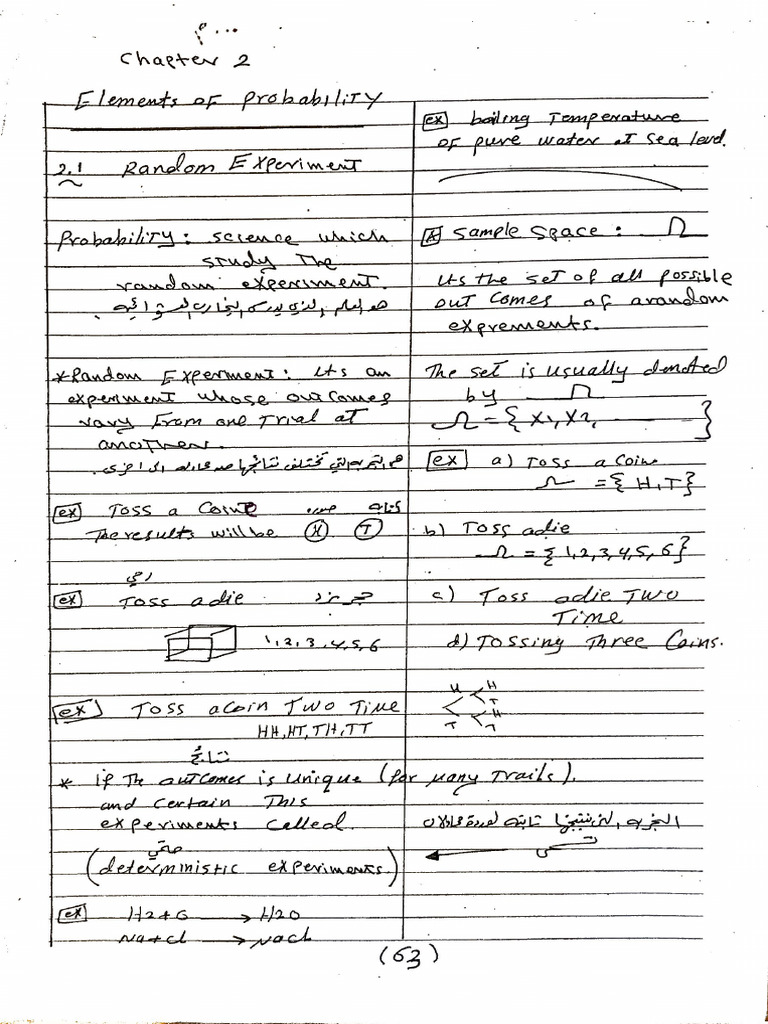 Chapter 2
Elements of Probability
2.1 Random Experiment
Probability: science which
study The
random experiment.
هو العلم الذي يدرس التجارب العشوائية.
*Random Experiment: Its an
experiment whose outcomes
vary from one Trial at
another.
هي التجربة التي تختلف نتائجها من محاولة الى اخرى.
ex Toss a Coin صورة كتابة
The results will be H T
رمي
ex Toss adie حجر نرد
1, 2, 3, 4, 5, 6
ex Toss acoin Two Time
HH, HT, TH, TT
نتائج
* if The outcomes is unique (for many Trails).
and certain This
experiments called
حتمي
(deterministic experiments)
ex H2+O → H2O
Na+cl → Nacl
ex boiling Temperature
of pure water at sea level.
* Sample Space: Ω
Its the set of all possible
out comes of arandom
exprements.
The set is usually denoted
by Ω
Ω = { X1, X2, }
ex a) Toss a Coin
Ω = { H, T }
b) Toss adie
Ω = { 1, 2, 3, 4, 5, 6 }
c) Toss adie Two
Time
d) Tossing Three Coins.
H H
T
H
T T
التجربه التي نتيجتها ثابته لعدة محاولات
تسمى
(63)